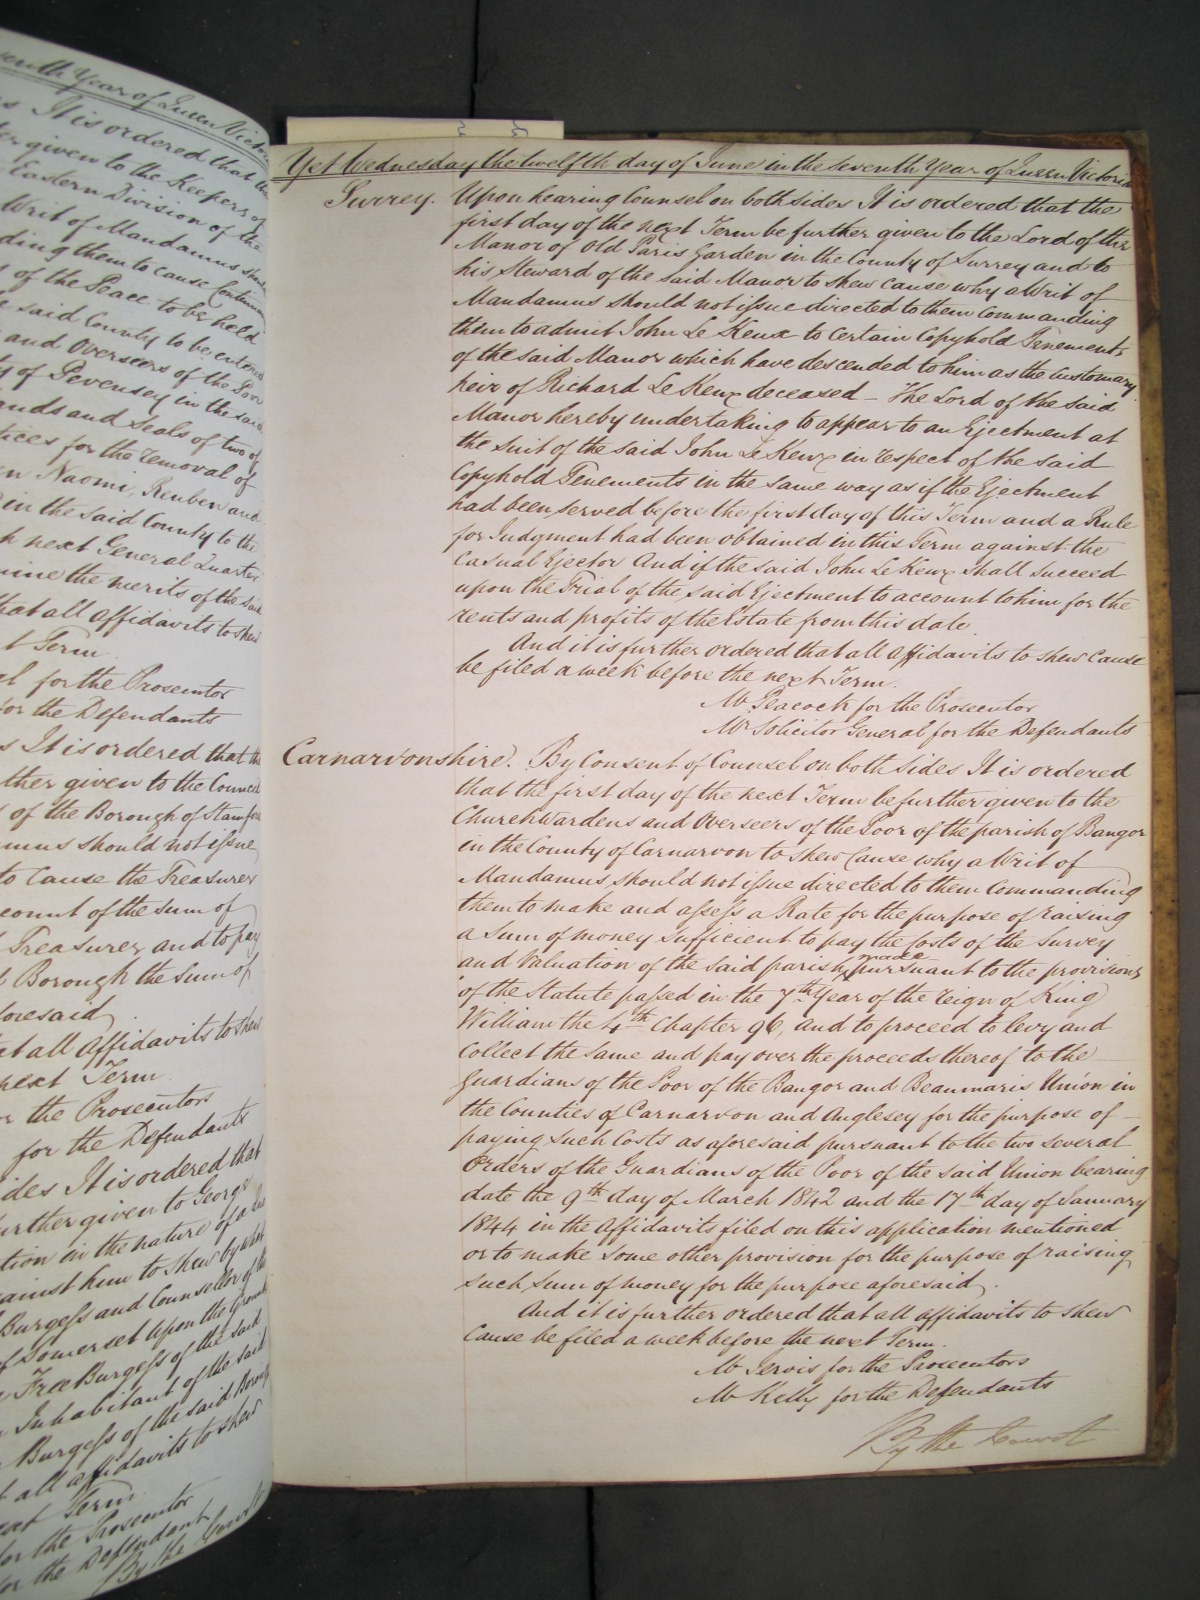 venth Year of Queen Victoria
s It is ordered that the
given to the Keepers of
Eastern Division of the
Writ of Mandamus should
ding them to cause Continuan
of the Peace to be held
said County to be entered
and Overseers of the Poor
of Pevensey in the said
ands and Seals of two of
tices for the removal of
n Naomi, Reuben and
in the said County to the
next General Quarter
mine the merits of the said
that all affidavits to shew
t Term
l for the Prosecutor
for the Defendants
s It is ordered that the
ther given to the Council
of the Borough of Stamford
mus should not issue
to cause the Treasurer
count of the sum of
Treasurer and to pay
Borough the sum of
foresaid
at all affidavits to shew
next Term
r the Prosecutors
for the Defendants
ides It is ordered that
further given to George
tion in the nature of a
ainst him to shew by what
Burgess and Counsellor of the
of Somerset upon the Ground
Free Burgess of the said
Inhabitant of the said
Burgess of the said Borough
t all affidavits to shew
ext Term
for the Prosecutor
for the Defendant
By the Court
Yet Wednesday the twelfth day of June in the seventh Year of Queen Victoria
Surrey. Upon hearing Counsel on both sides It is ordered that the
first day of the next Term be further given to the Lord of the
Manor of Old Paris Garden in the County of Surrey and to
his Steward of the said Manor to shew cause why a Writ of
Mandamus should not issue directed to them Commanding
them to admit John Le Keux to certain Copyhold Tenements
of the said Manor which have descended to him as the customary
heir of Richard Le Keux deceased – The Lord of the said
Manor hereby undertaking to appear to an Ejectment at
the suit of the said John Le Keux in respect of the said
Copyhold Tenements in the same way as if the Ejectment
had been served before the first day of this Term and a Rule
for Judgment had been obtained in this Term against the
Casual Ejector And if the said John Le Keux shall succeed
upon the Trial of the said Ejectment to account to him for the
rents and profits of the Estate from this date
And it is further ordered that all affidavits to shew Cause
be filed a week before the next Term.
Mr Peacock for the Prosecutor
Mr Solicitor General for the Defendants
Carnarvonshire. By Consent of Counsel on both sides It is ordered
that the first day of the next Term be further given to the
Churchwardens and Overseers of the Poor of the parish of Bangor
in the County of Carnarvon to shew Cause why a Writ of
Mandamus should not issue directed to them Commanding
them to make and assess a Rate for the purpose of raising
a sum of money sufficient to pay the Costs of the Survey
and Valuation of the said parish made pursuant to the provisions
of the Statute passed in the 7th Year of the reign of King
William the 4th Chapter 96, and to proceed to levy and
Collect the same and pay over the proceeds thereof to the
Guardians of the Poor of the Bangor and Beaumaris Union in
the Counties of Carnarvon and Anglesey for the purpose of
paying such Costs as aforesaid pursuant to the two several
Orders of the Guardians of the Poor of the said Union bearing
date the 9th day of March 1842 and the 17th day of January
1844 in the affidavits filed on this application mentioned
or to make some other provision for the purpose of raising
such sum of money for the purpose aforesaid.
And it is further ordered that all affidavits to shew
Cause be filed a week before the next Term.
Mr Jervis for the Prosecutors
Mr Kelly for the Defendants
By the Court